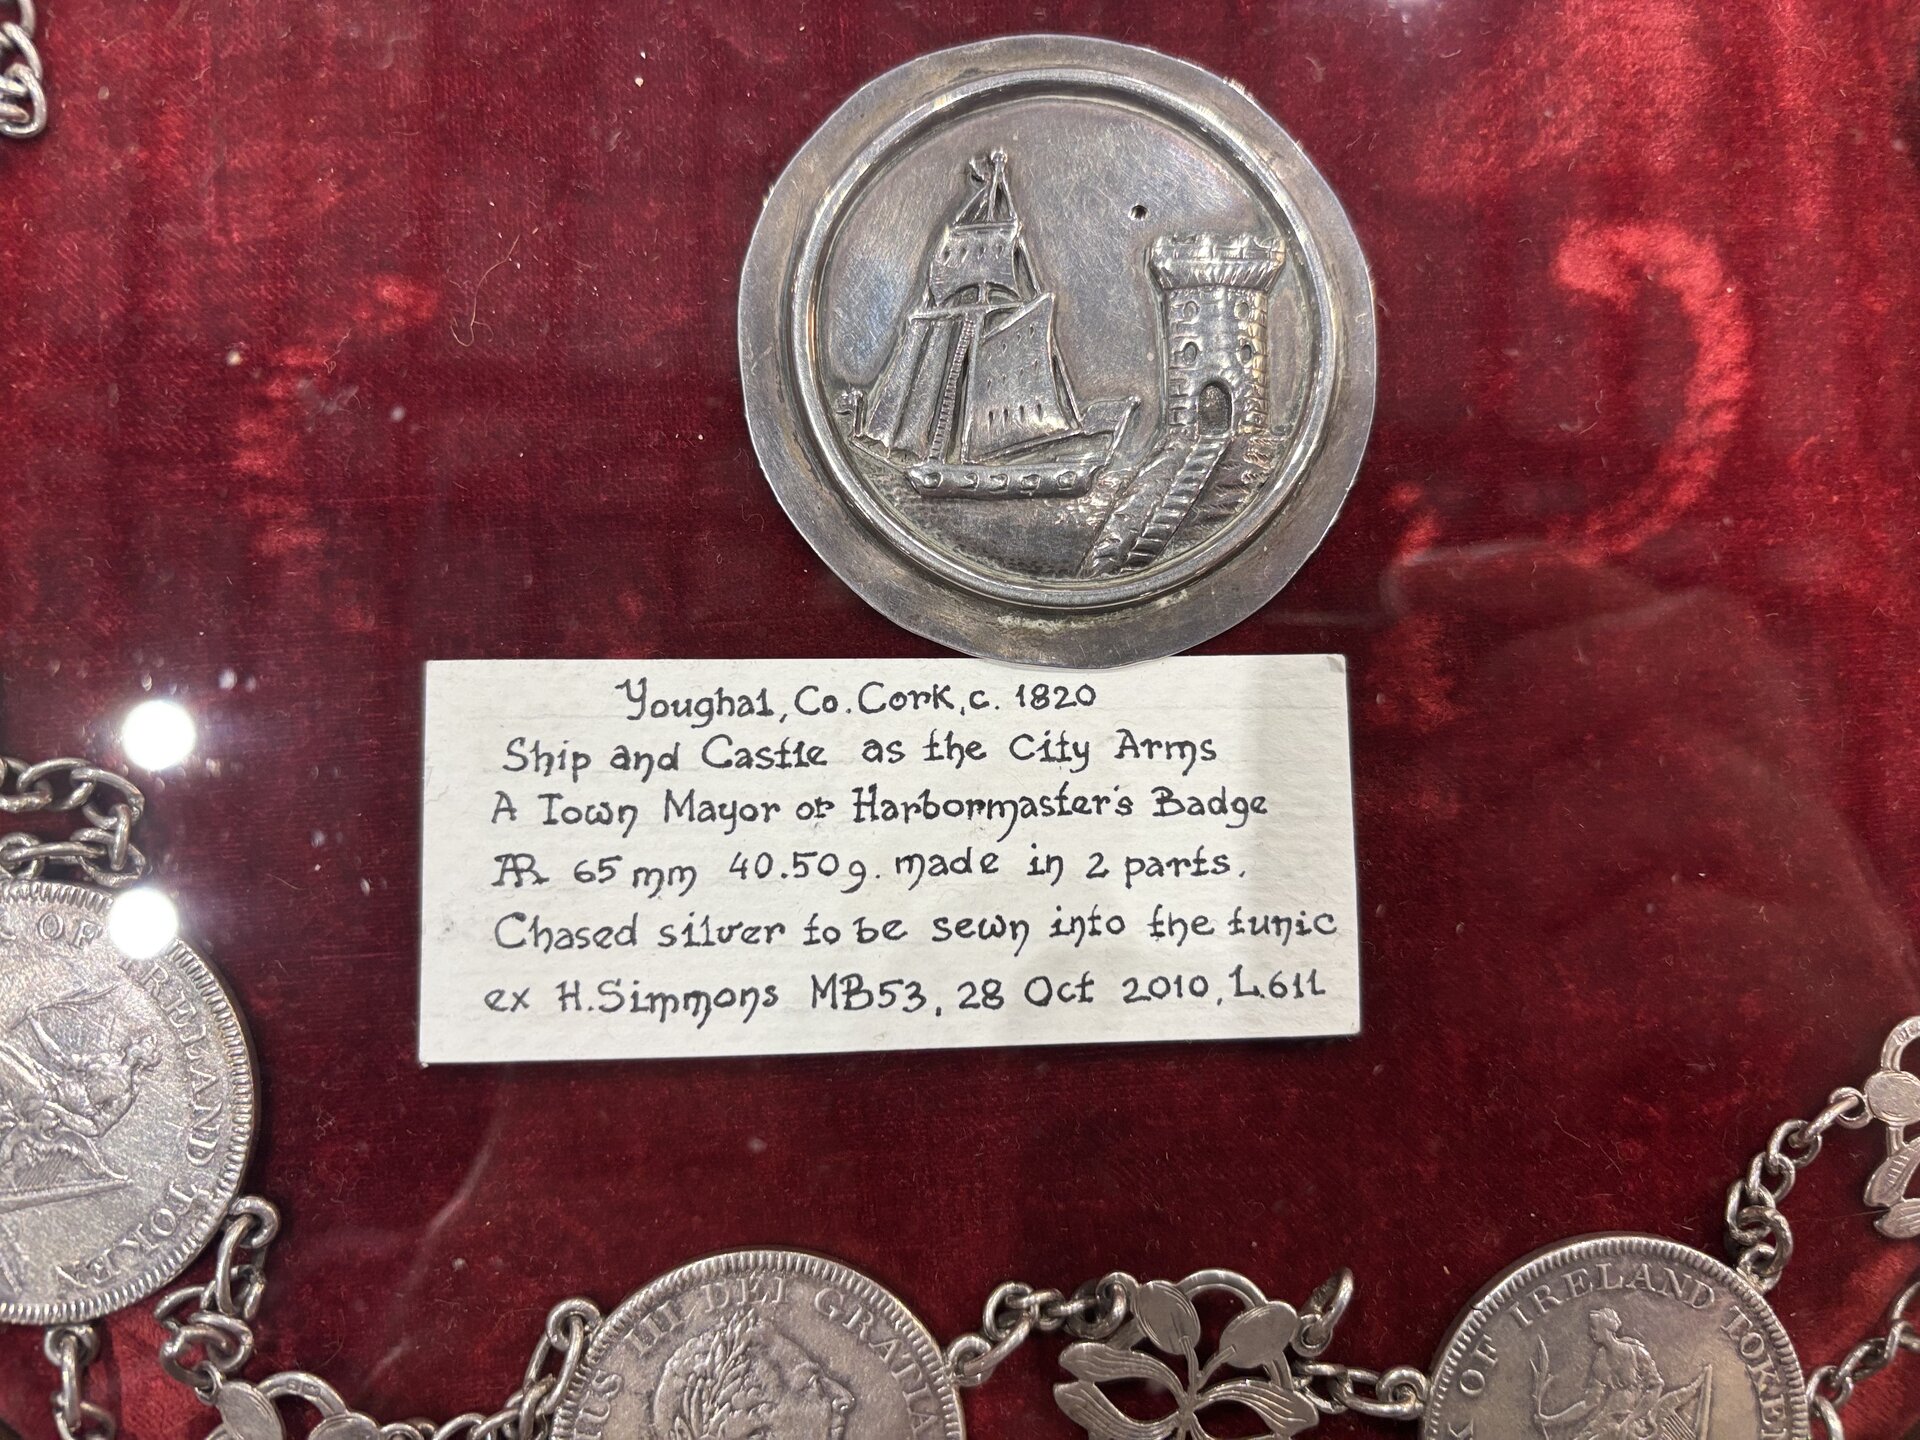 Youghal, Co. Cork, c. 1820
Ship and Castle as the City Arms
A Town Mayor or Harbormaster's Badge
AR 65 mm 40.50g. made in 2 parts.
Chased silver to be sewn into the tunic
ex H. Simmons MB53, 28 Oct 2010, L.611
OF IRELAND TOKEN
III DEI GRATIA
OF IRELAND TOKEN